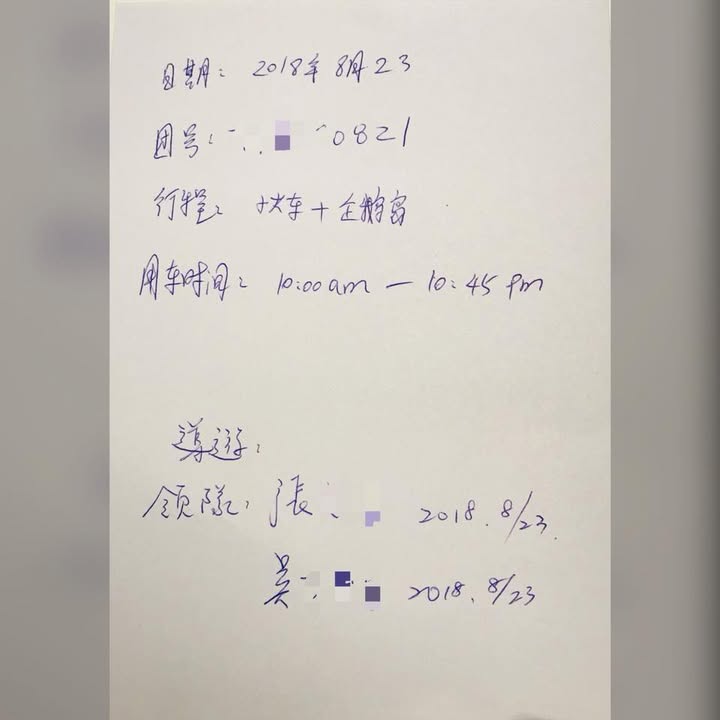 日期: 2018年8月23
团号: 0821
行程: 火车+企鹅岛
用车时间: 10:00am — 10:45 pm
導遊:
领隊: 張 2018.8/23.
吴 2018.8/23